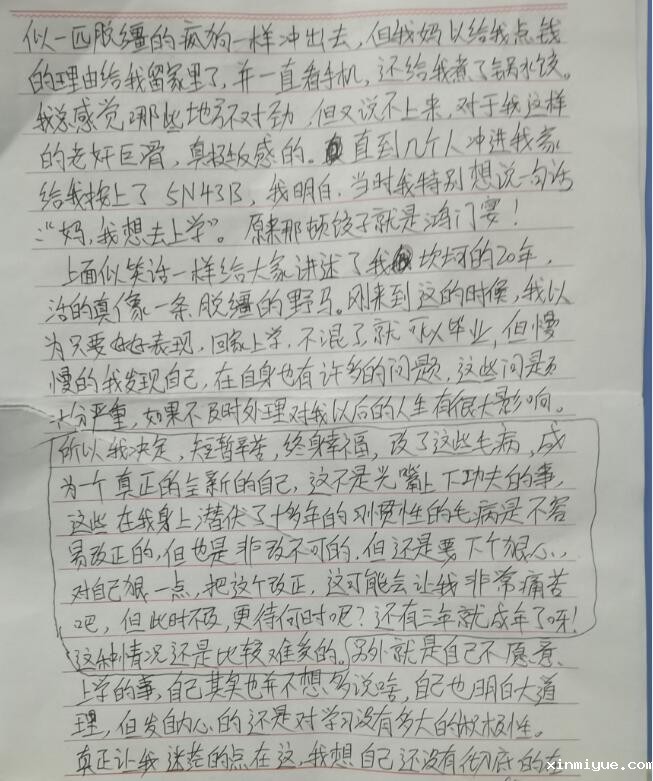 似一匹脱缰的疯狗一样冲出去，但我妈以给我点钱
的理由给我留家里了，并一直看手机，还给我煮了锅水饺。
我总感觉哪些地方不对劲，但又说不上来，对于我这样
的老奸巨滑，真挺反感的。直到几个人冲进我家
给我按上了 5N43B，我明白，当时我特别想说一句话
：“妈，我想去上学”。原来那顿饺子就是鸿门宴！
上面似笑话一样给大家讲述了我坎坷的20年，
活的真像一条脱缰的野马。刚来到这的时候，我以
为只要好好表现，回家上学，不混了就可以毕业，但慢
慢的我发现自己，在自身也有许多的问题，这些问题
十分严重，如果不及时处理对我以后的人生有很大影响。
所以我决定，短暂辛苦，终身幸福，改了这些毛病，成
为一个真正的全新的自己，这不是光嘴上下功夫的事，
这些在我身上潜伏了十多年的习惯性的毛病是不容
易改正的，但也是非改不可的，但还是要下个狠心，
对自己狠一点，把这个改正，这可能会让我非常痛苦
吧，但此时不改，更待何时呢？还有三年就成年了呀！
这种情况还是比较难受的。另外就是自己不愿意
上学的事，自己其实也并不想多说啥，自己也明白大道
理，但发自内心的还是对学习没有多大的积极性。
真正让我迷茫的点在这，我想自己还没有彻底的在
xinmiyue.com